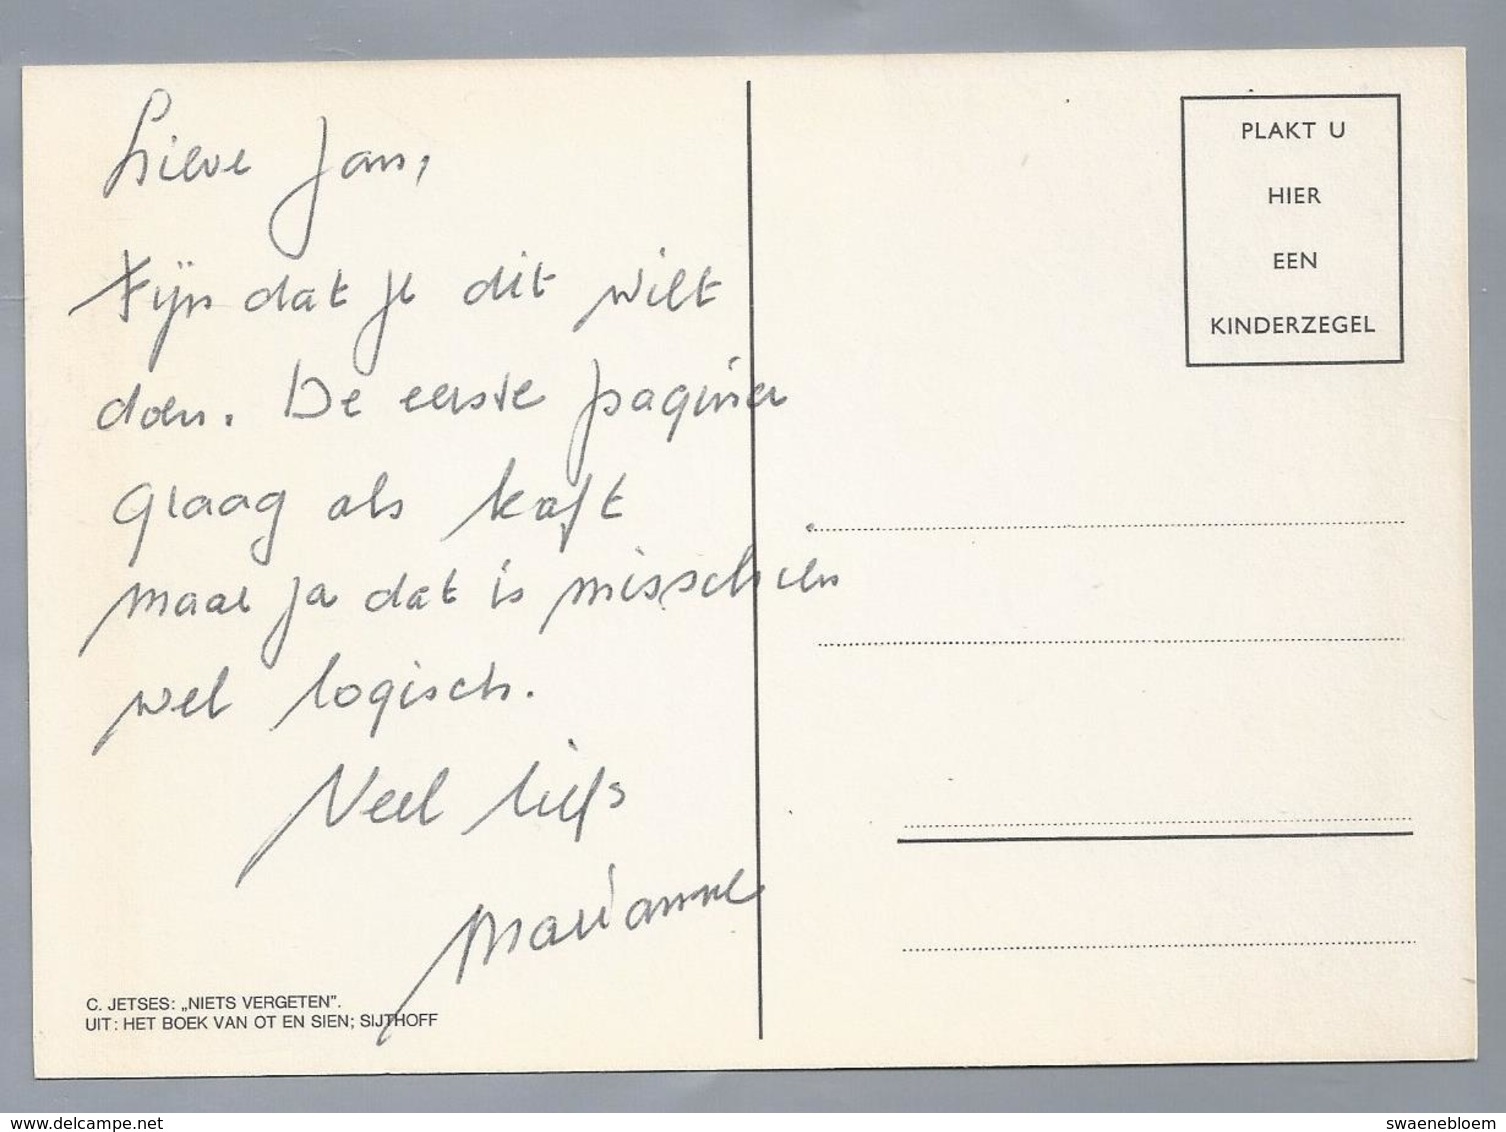 Lieve Jan,
Fijn dat je dit wilt
doen. De eerste pagina
graag als kaft
maar ja dat is misschien
wel logisch.
Veel liefs
Marianne
C. JETSES: „NIETS VERGETEN”.
UIT: HET BOEK VAN OT EN SIEN; SIJTHOFF
PLAKT U
HIER
EEN
KINDERZEGEL
www.delcampe.net
swaenebloem